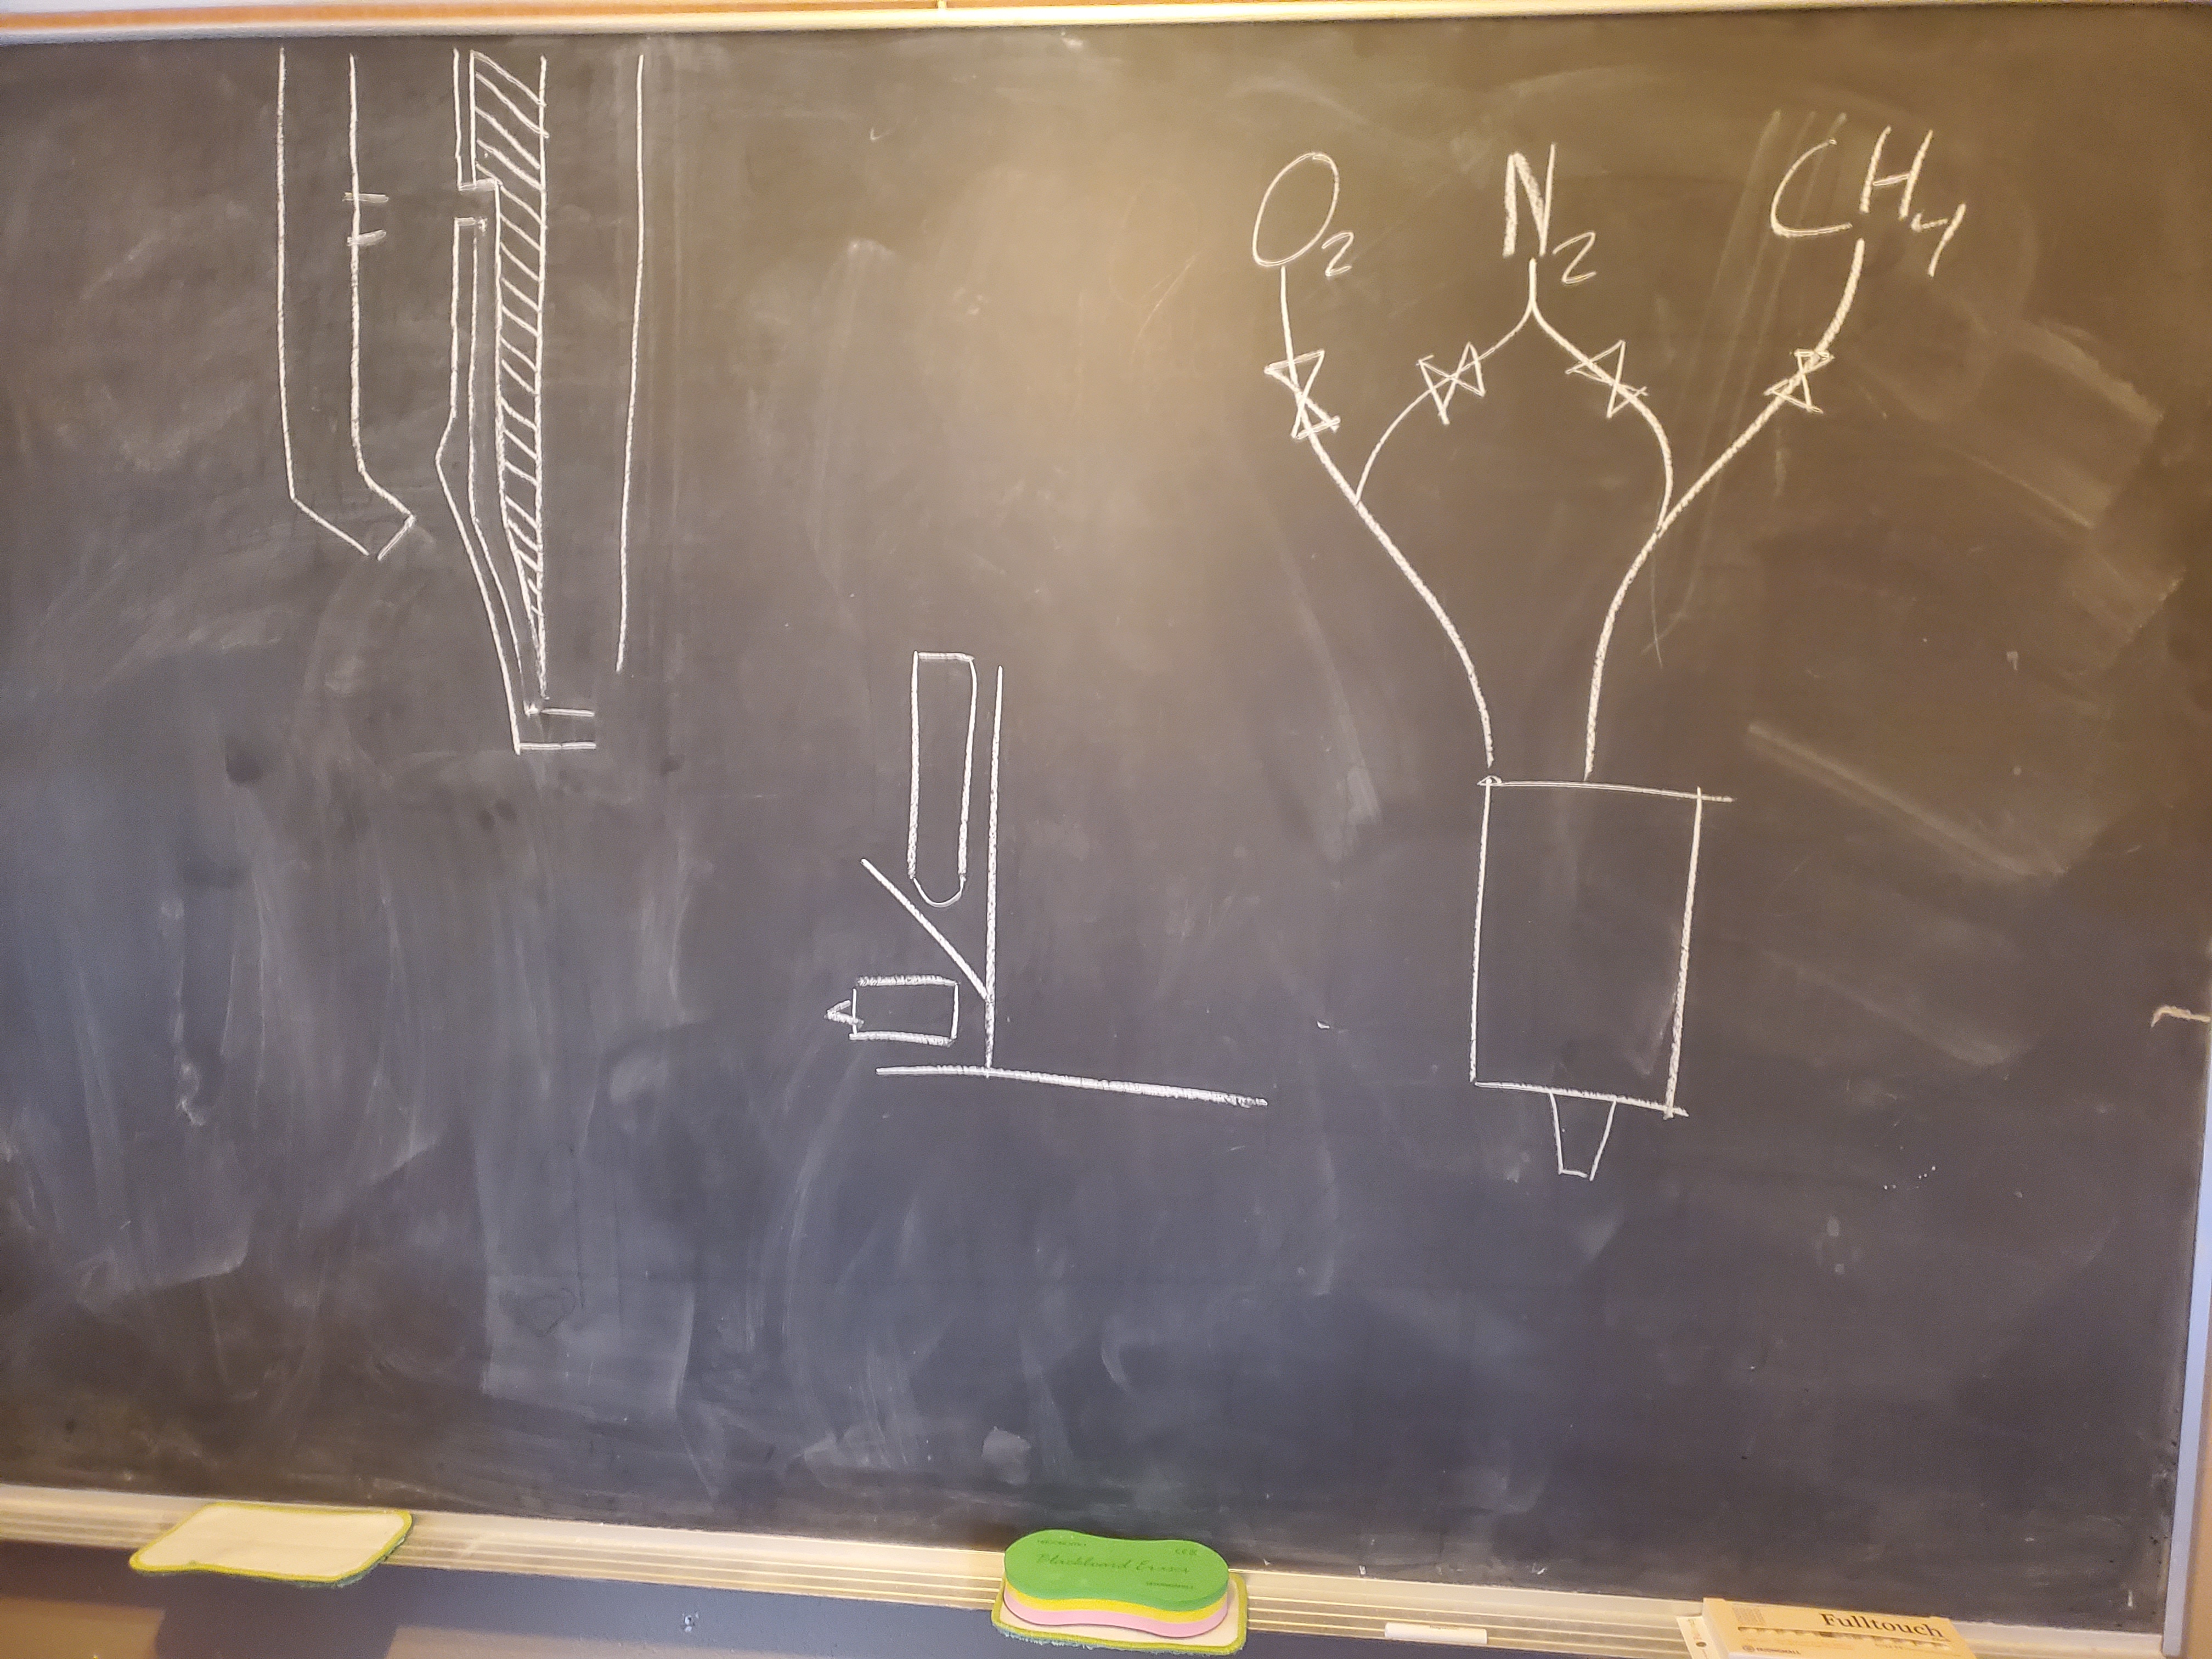 O₂ N₂ CH₄
Blackboard Eraser
Fulltouch